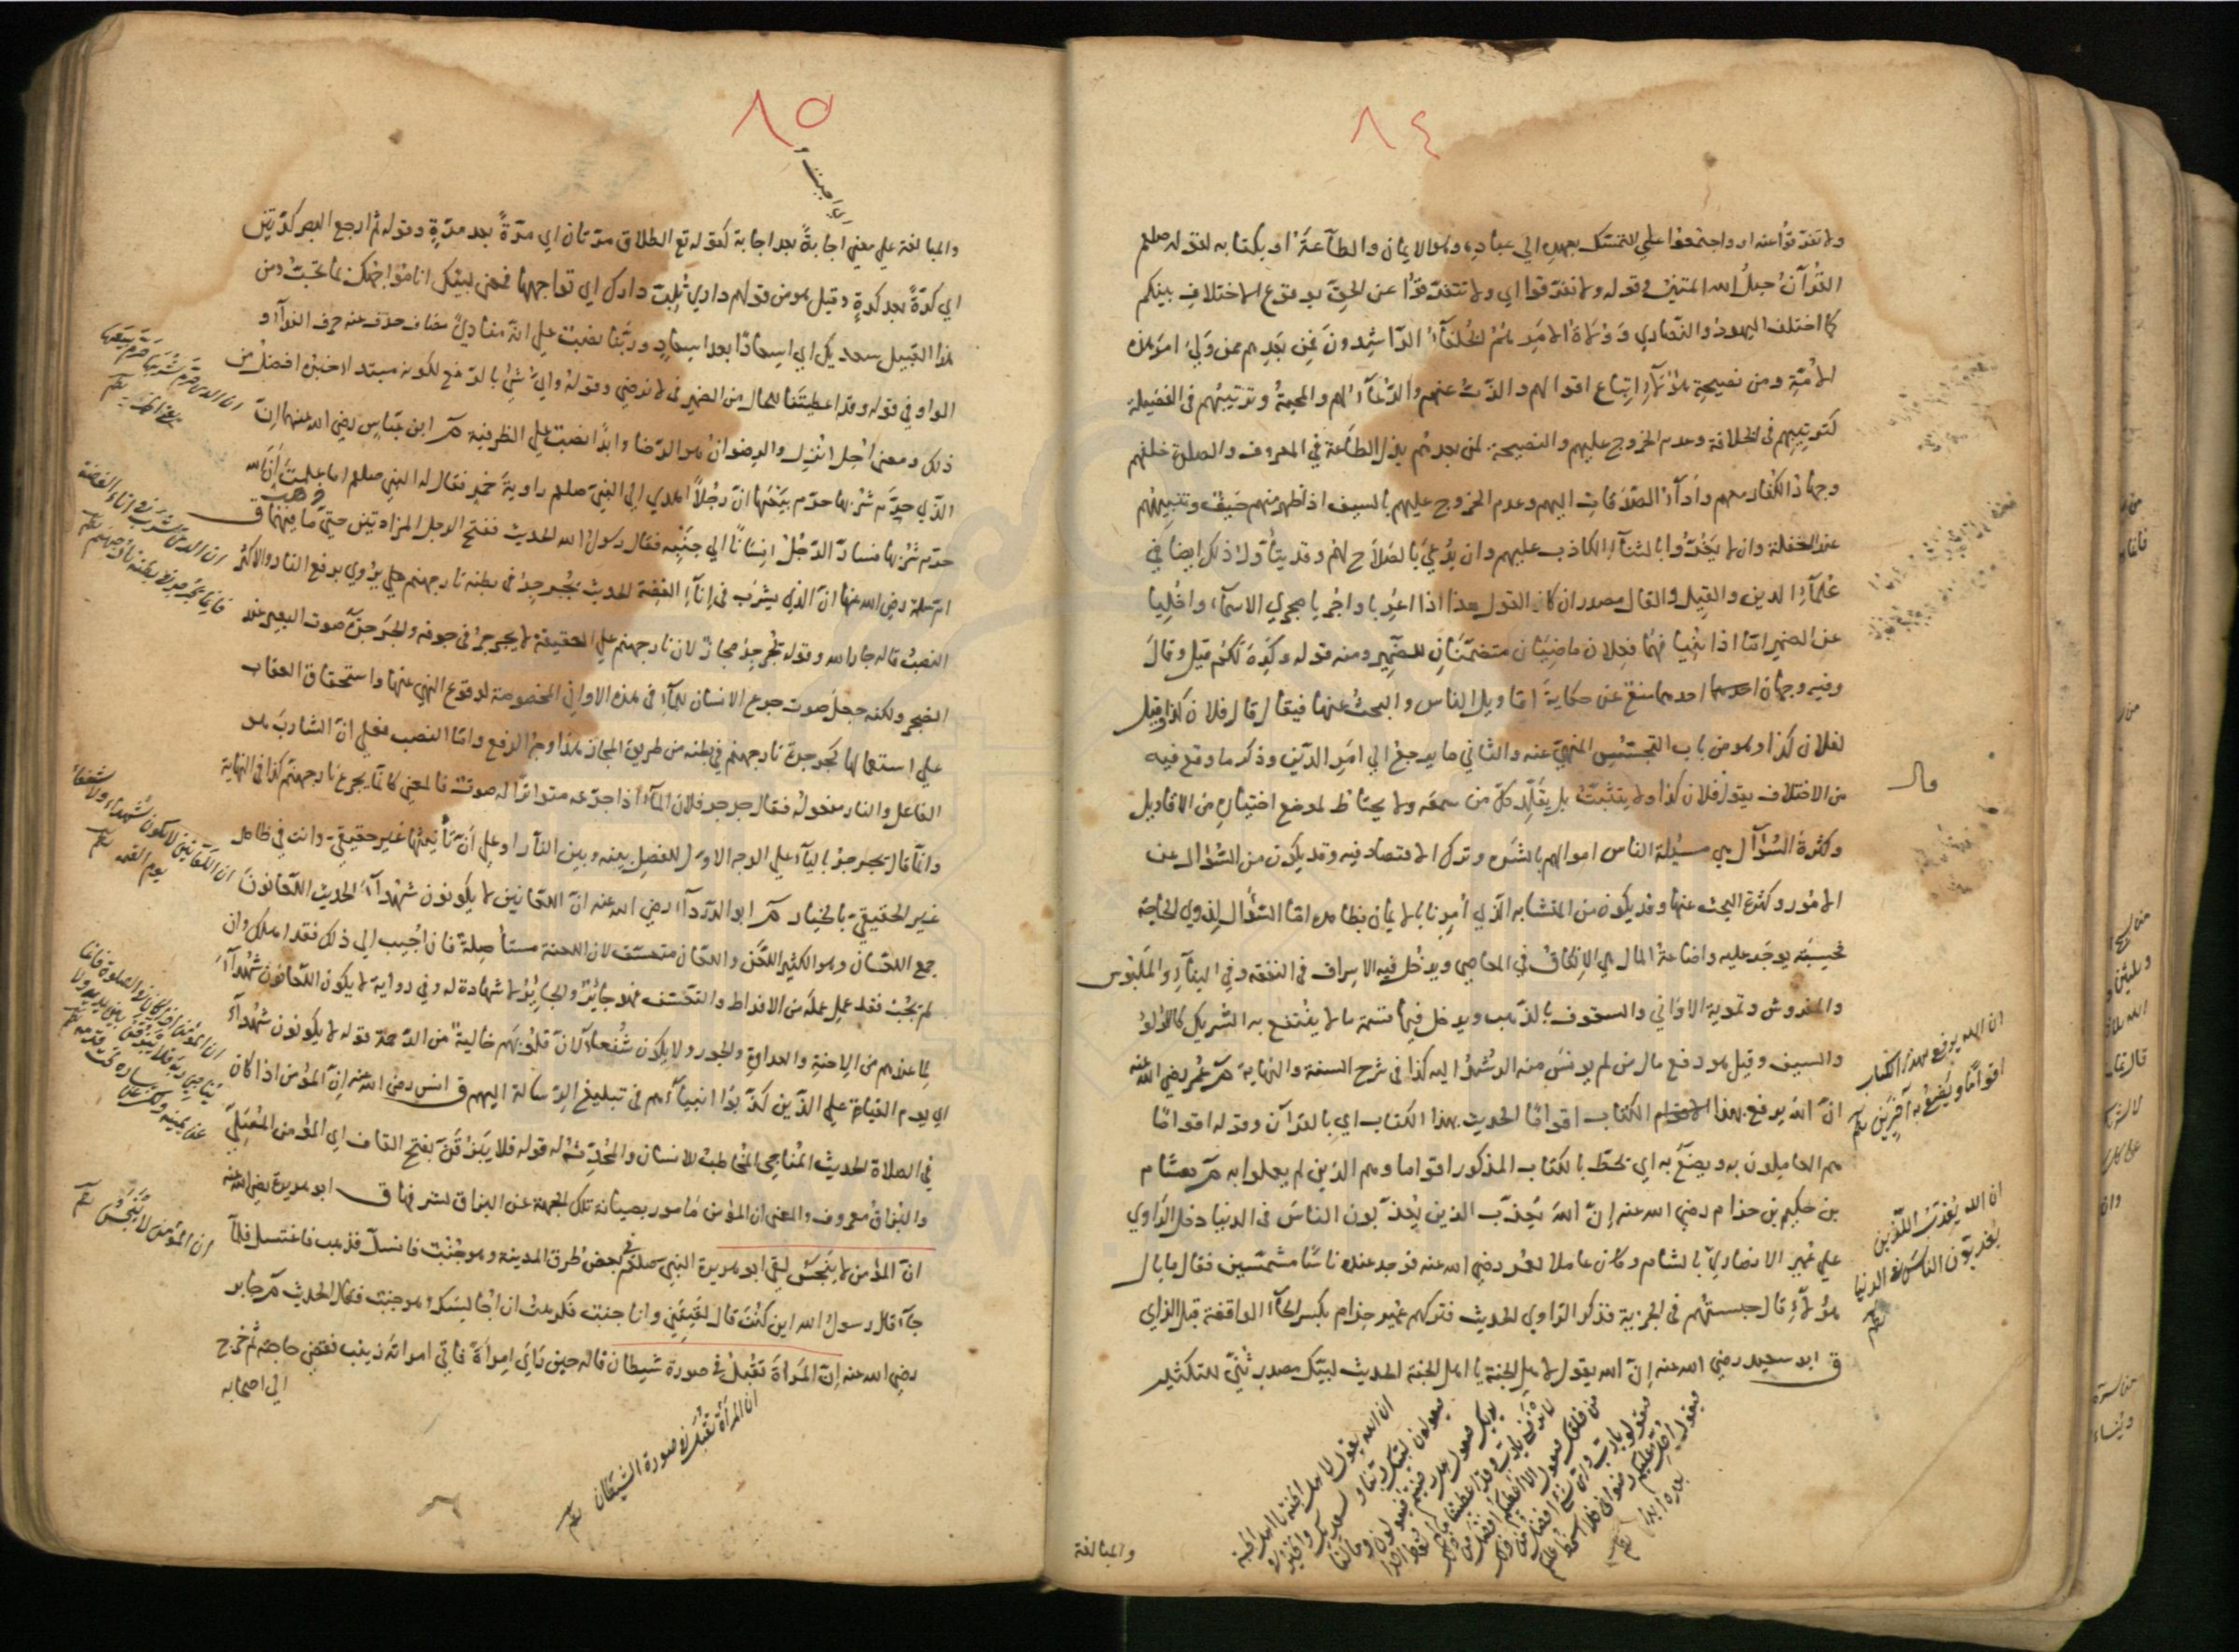 ٨٤
ولا تفرقوا عنه او واجتمعوا علي التمسك بعهده الي عباده وهو الايمان والطاعة او بكتابه لقوله صلعم
القرآن حبل الله المتين وقوله ولا تفرقوا اي ولا تتفرقوا عن الحق بوقوع الاختلاف بينكم
كما اختلف اليهود والنصاري وولاة الامر هم الخلفاء الراشدون فمن بعدهم ممن ولي امر هذه
الامة ومن نصيحة هؤلاء اتباع اقوالهم والذب عنهم والدعاء لهم والمحبة وترتيبهم في الفضيلة
كترتيبهم في الخلافة وعدم الخروج عليهم والنصيحة لمن بعدهم بذل الطاعة في المعروف والصلوة خلفهم
وجهاد الكفار معهم واداء الصدقات اليهم وعدم الخروج عليهم بالسيف اذا ظهر منهم حيف وتنبيههم
عند الغفلة وان لا يغروا بالثناء الكاذب عليهم وان يدعي بالصلاح لهم وقد يتأول ذلك ايضا في
علماء الدين والقيل والقال مصدران كالقول هذا اذا اعربا واجريا مجري الاسماء واخليا
عن الضمير اما اذا بنيا فهما فعلان ماضيان متضمنان للضمير ومنه قوله وكره لكم قيل وقال
وفيه وجهان احدهما منع عن حكاية اقاويل الناس والبحث عنها فيقال قال فلان كذا وقيل
لفلان كذا وهو من باب التجسس المنهي عنه والثاني ما يرجع الي امر الدين وذكر ما وقع فيه
من الاختلاف يقول فلان كذا ولا يتثبت بل يقلد كل من سمعه ولا يحتاط لموضع اختياره من الاقاويل
وكثرة السؤال هي مسئلة الناس اموالهم بالشره وترك الاقتصاد فيه وقد يكون من السؤال عن
الامور وكثرة البحث عنها وقد يكون من المتشابه الذي امرنا بالايمان بظاهره اما السؤال لذوي الحاجة
فحسبة يوجر عليه واضاعة المال هي الانفاق في المعاصي ويدخل فيه الاسراف في النفقة وفي البناء والملبوس
والمفروش وتمويه الاواني والسقوف بالذهب ويدخل فيها قسمة ما لا ينتفع به الشريك كاللؤلؤ
والسيف وقيل هو دفع مال من لم يونس منه الرشد اليه كذا في شرح السنة والنهاية م عمر رضي الله عنه
ان الله يرفع بهذا الكتاب اقواما الحديث بهذا الكتاب اي بالقرآن وقوله اقواما
هم العاملون به ويضع به اي يحط بالكتاب المذكور اقواما وهم الذين لم يعملوا به م هشام
بن حكيم بن حزام رضي الله عنه ان الله يعذب الذين يعذبون الناس في الدنيا دخل الراوي
علي عمير الانصاري بالشام وكان عاملا لعمر رضي الله عنه فوجد عنده ناسا مشمسين فقال ما بال
هؤلاء قال حبستهم في الجزية فذكر الراوي الحديث فتركهم عمير حزام بكسر الحاء الواقعة قبل الزاي
ق ابو سعيد رضي الله عنه ان الله يقول لاهل الجنة يا اهل الجنة الحديث لبيك مصدر ثني للتكثير
والمبالغة
قال
ان الله يرفع بهذا الكتاب
اقواما ويضع به آخرين
ان الله يعذب الذين
يعذبون الناس في الدنيا
ان الله يقول لاهل الجنة يا اهل الجنة
فيقولون لبيك ربنا وسعديك والخير في
يديك فيقول هل رضيتم فيقولون وما لنا
لا نرضي يا رب وقد اعطيتنا ما لم تعط احدا
من خلقك فيقول الا اعطيكم افضل من ذلك
فيقولون يا رب واي شيء افضل من ذلك
فيقول احل عليكم رضواني فلا اسخط عليكم
بعده ابدا
٨٥
والمبالغة علي معني اجابة بعد اجابة كقوله تع الطلاق مرتان اي مرة بعد مرة وقوله ثم ارجع البصر كرتين
اي كرة بعد كرة وقيل هو من قولهم داري تلب دارك اي تواجهها فمعني لبيك انا مواجهك بما تحب ومن
هذا القبيل سعديك اي اسعادا بعد اسعاد وربنا نصبت علي انه منادي مضاف حذف عنه حرف النداء و
الواو في قوله وقد اعطيتنا للحال من الضمير في لا نرضي وقوله واي شئ بالرفع لكونه مبتدا خبره افضل من
ذلك ومعني احل انزل والرضوان هو الرضا وابدا نصبت علي الظرفية م ابن عباس رضي الله عنهما ان
الذي حرم شربها حرم بيعها ان رجلا اهدي الي النبي صلعم راوية خمر فقال له النبي صلعم اما علمت ان الله
حرم شربها فسار الرجل انسانا الي جنبه فقال رسول الله الحديث ففتح الرجل المزادتين حتي ذهب ما فيهما ق
ام سلمة رضي الله عنها ان الذي يشرب في اناء الفضة الحديث يجرجر في بطنه نار جهنم يروي برفع النار والاكثر
النصب قاله جار الله وقوله يجرجر مجاز لان نار جهنم علي الحقيقة لا يجرجر في جوفه والجرجرة صوت البعير عند
الضجر ولكنه جعل صوت جرع الانسان للماء في هذه الاواني المخصوصة لوقوع النهي عنها واستحقاق العقاب
علي استعمالها كجرجرة نار جهنم في بطنه من طريق المجاز هذا وجه الرفع واما النصب فعلي ان الشارب هو
الفاعل والنار مفعوله فقال جرجر فلان الماء اذا جرعه متواترا له صوت فالمعني كانما يجرع نار جهنم كذا في النهاية
وانما قال يجرجر بالياء علي الوجه الاول للفصل بينه وبين النار او علي ان تأنيثها غير حقيقي وانت في ظاهر
غير الحقيقي بالخيار م ابو الدرداء رضي الله عنه ان اللعانين لا يكونون شهداء الحديث اللعانون
جمع اللعان وهو الكثير اللعن واللعان متعسف لان اللعنة مستأصلة فان اجيب الي ذلك فقد اهلك وان
لم يجب فقد عمل عمله من الافراط والتعسف فهو جائر والجائر لا شهادة له وفي رواية لا يكون اللعانون شهداء
لما عندهم من الاحنة والعداوة والجور ولا يكون شفعاء لان قلوبهم خالية من الرحمة قوله لا يكونون شهداء
اي يوم القيامة علي الذين كذبوا انبياءهم في تبليغ الرسالة اليهم ق انس رضي الله عنه ان المؤمن اذا كان
في الصلاة الحديث المناجي المخاطب للانسان والمحدث له قوله فلا يبزقن بفتح القاف اي المؤمن المصلي
والبزاق معروف والمعني ان المؤمن مامور بصيانة تلك الجهة عن البزاق لشرفها ق ابو هريرة رضي الله عنه
ان المؤمن لا ينجس لقي ابو هريرة النبي صلعم في بعض طرق المدينة وهو جنب فانسل فذهب فاغتسل فلما
جاء قال رسول الله اين كنت قال لقيتني وانا جنب فكرهت ان اجالسك وهو جنب فقال الحديث م جابر
رضي الله عنه ان المرأة تقبل في صورة شيطان قاله حين رأي امرأة فاتي امراته زينب فقضي حاجته ثم خرج
الي اصحابه
ان الذي حرم شربها حرم بيعها
ان الذي يشرب في اناء الفضة
فانما يجرجر في بطنه نار جهنم
ان اللعانين لا يكونون شهداء ولا شفعاء
يوم القيمة
ان المؤمن اذا كان في الصلوة فانما
يناجي ربه فلا يبزقن بين يديه ولا
عن يمينه ولكن عن يساره تحت قدمه
ان المؤمن لا ينجس
ان المرأة تقبل في صورة الشيطان